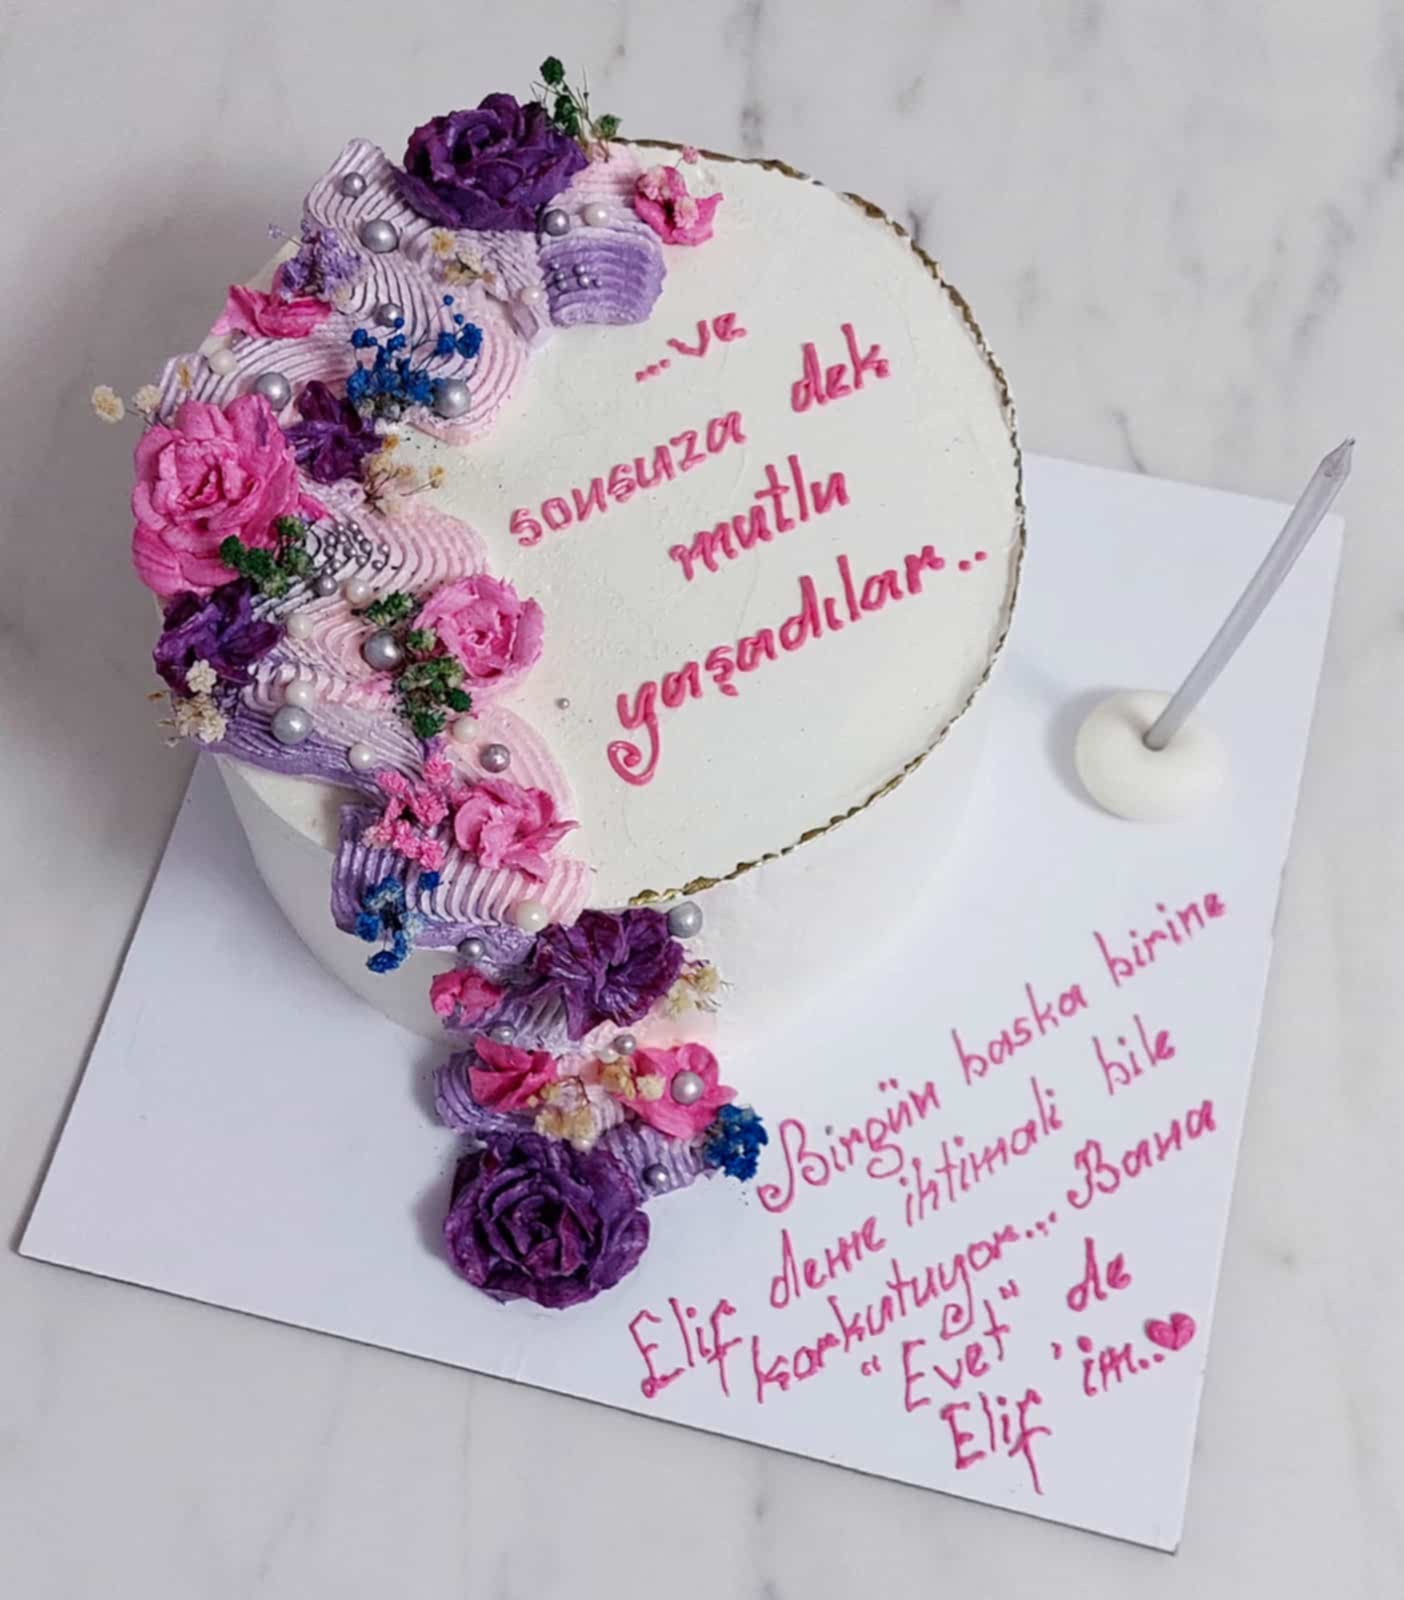 ...ve
sonsuza dek
mutlu
yaşadılar..
Birgün baska birine
Elif deme ihtimali bile
korkutuyor... Bana
"Evet" de
Elif 'im..